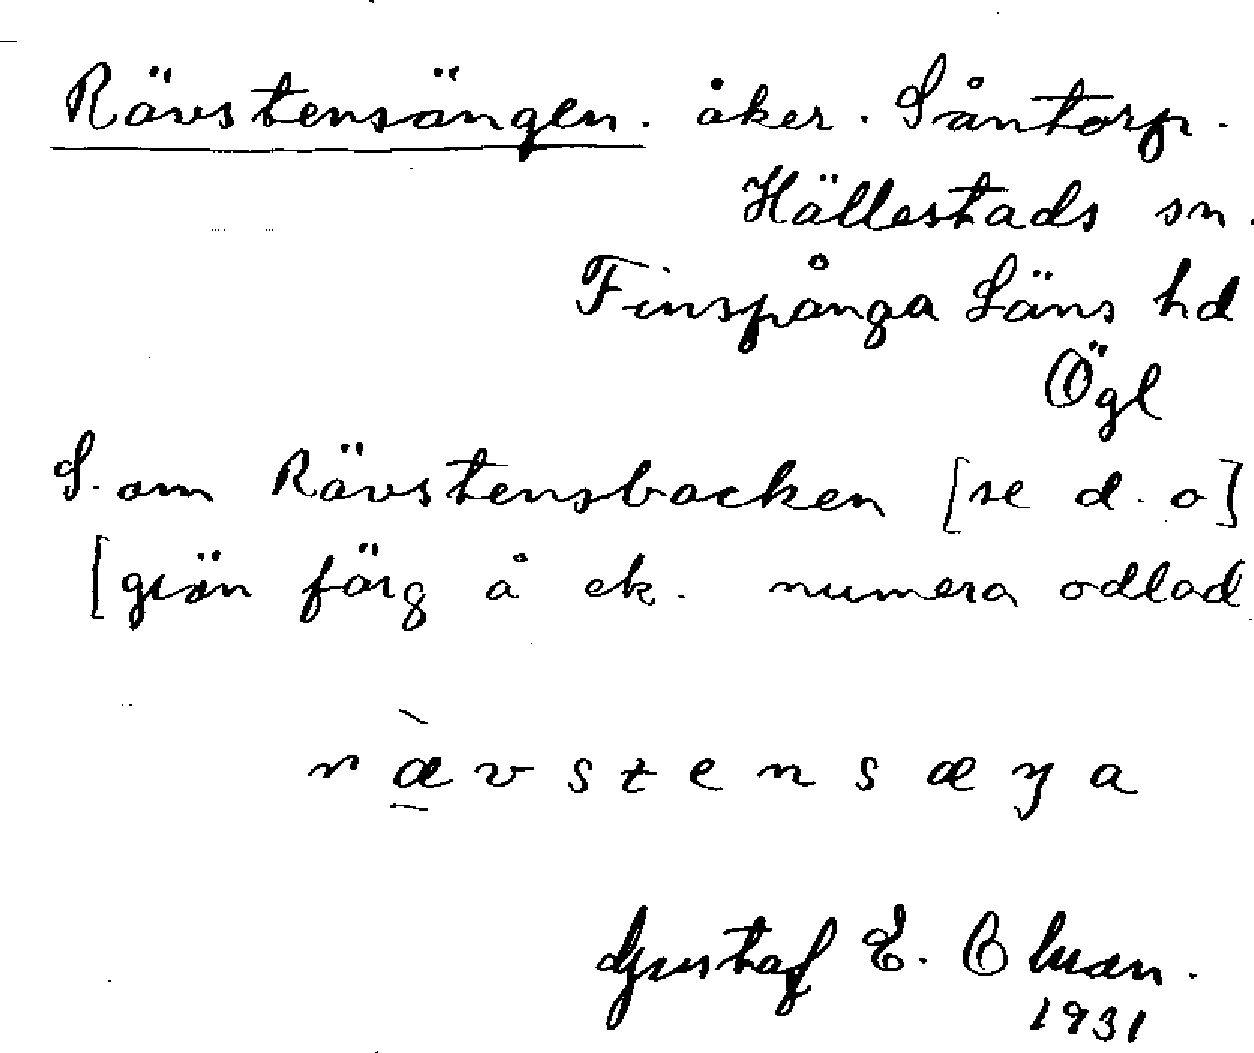 Rävstensängen. åker. Såntorp.
Hällestads sn.
Finspånga Läns hd
Ögl
S. om Rävstensbacken [se d. o]
[grön färg å ek. numera odlad
rævstensæŋa
Gustaf E.
1931